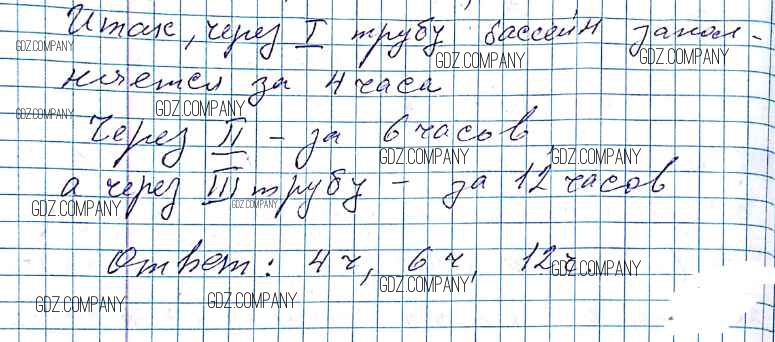 Итак, через I трубу бассейн запол-
GDZ.COMPANY GDZ.COMPANY GDZ.COMPANY
няется за 4 часа
GDZ.COMPANY GDZ.COMPANY
Через II - за 6 часов,
GDZ.COMPANY GDZ.COMPANY
а через III трубу - за 12 часов
GDZ.COMPANY GDZ.COMPANY
Ответ: 4 ч, 6 ч, 12 ч.
GDZ.COMPANY GDZ.COMPANY
GDZ.COMPANY GDZ.COMPANY